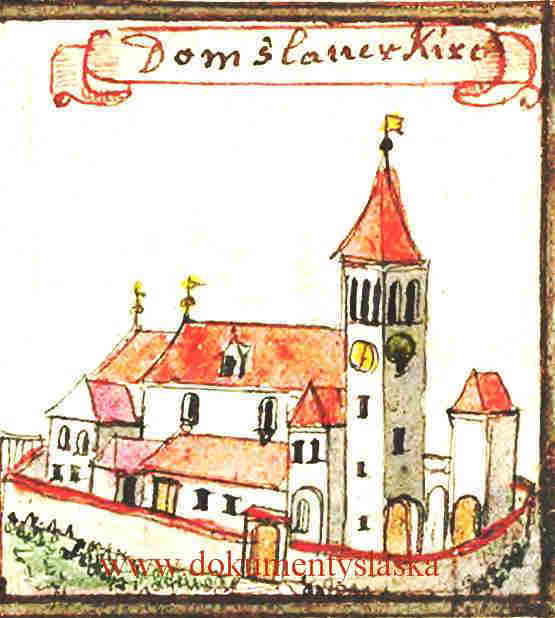 Domslauer Kirc
www.dokumentyslaska